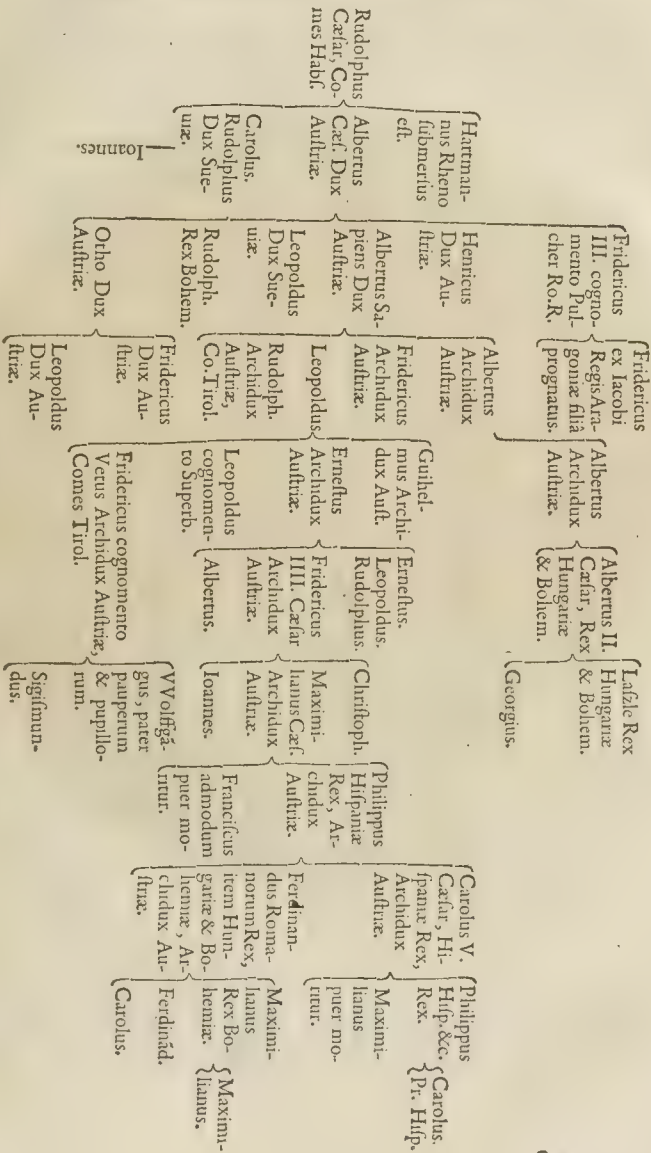 Rudolphus
Cæſar, Co-
mes Habſ.
Hartman-
nus Rheno
ſubmerſus
eſt.
Albertus
Cæſ. Dux
Auſtriæ.
Carolus.
Rudolphus
Dux Sue-
uiæ.
Ioannes.
Fridericus
III. cogno-
mento Pul-
cher Ro.R.
Henricus
Dux Au-
ſtriæ.
Albertus Sa-
piens Dux
Auſtriæ.
Leopoldus
Dux Sue-
uiæ.
Rudolph.
Rex Bohem.
Otho Dux
Auſtriæ.
Fridericus
ex Iacobi
Regis Ara-
goniæ filiâ
prognatus.
Albertus
Archidux
Auſtriæ.
Fridericus
Archidux
Auſtriæ.
Leopoldus
Rudolph.
Archidux
Auſtriæ,
Co. Tirol.
Fridericus
Dux Au-
ſtriæ.
Leopoldus
Dux Au-
ſtriæ.
Albertus
Archidux
Auſtriæ.
Guihel-
mus Archi-
dux Auſt.
Erneſtus
Archidux
Auſtriæ.
Leopoldus
cognomen-
to Superb.
Fridericus cognomento
Vetus Archidux Auſtriæ,
Comes Tirol.
Albertus II.
Cæſar, Rex
Hungariæ
& Bohem.
Erneſtus.
Leopoldus.
Rudolphus.
Fridericus
IIII. Cæſar
Archidux
Auſtriæ.
Albertus.
VVolffgã-
gus, pater
pauperum
& pupillo-
rum.
Sigiſmun-
dus.
Laſzle Rex
Hungariæ
& Bohem.
Georgius.
Chriſtoph.
Maximi-
lianus Cæſ.
Archidux
Auſtriæ.
Ioannes.
Philippus
Hiſpaniæ
Rex, Ar-
chidux
Auſtriæ.
Franciſcus
admodum
puer mo-
ritur.
Carolus V.
Cæſar, Hi-
ſpaniæ Rex,
Archidux
Auſtriæ.
Ferdinan-
dus Roma-
norum Rex,
item Hun-
gariæ & Bo-
hemiæ, Ar-
chidux Au-
ſtriæ.
Philippus
Hiſp. &c.
Rex.
Maximi-
lianus
puer mo-
ritur.
Maximi-
lianus
Rex Bo-
hemiæ.
Ferdinãd.
Carolus.
Carolus.
Pr. Hiſp.
Maximi-
lianus.